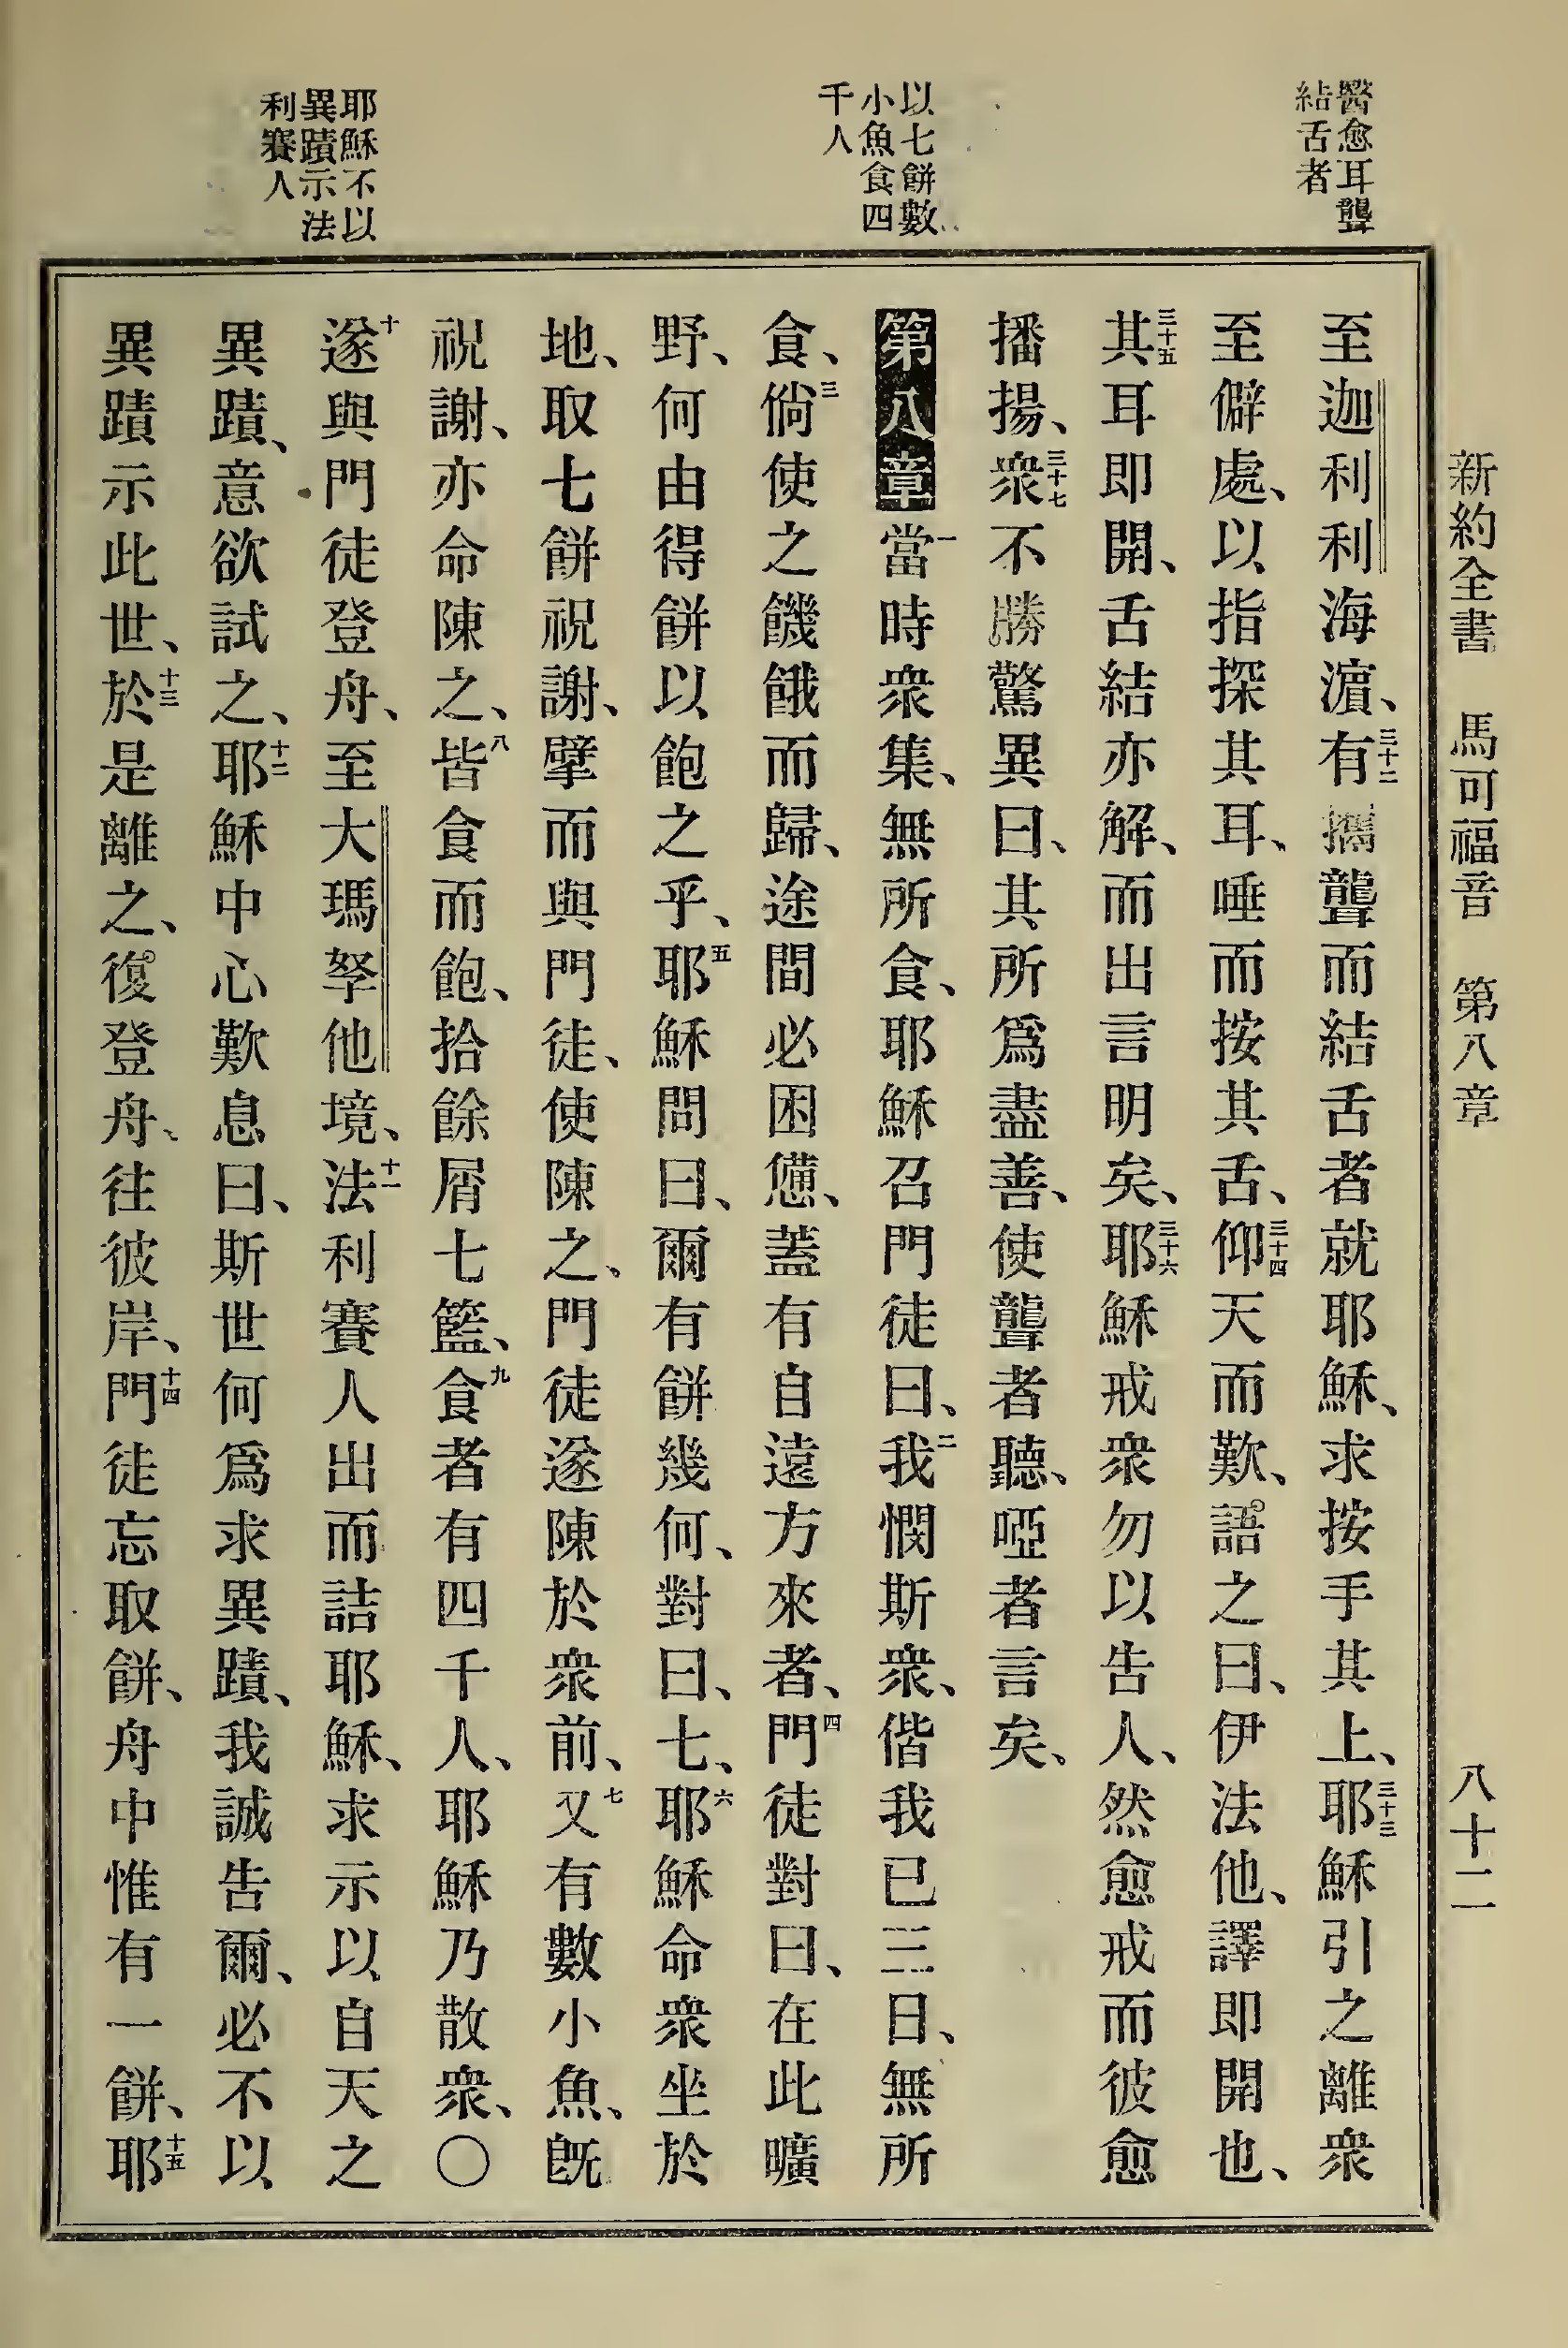 新約全書 馬可福音 第八章 八十二
醫愈耳聾
結舌者
以七餅數
小魚食四
千人
耶穌不以
異蹟示法
利賽人
至迦利利海濵、三十二有攜聾而結舌者就耶穌、求按手其上、三十三耶穌引之離衆
至僻處、以指探其耳、唾而按其舌、三十四仰天而歎、語之曰、伊法他、譯即開也、
三十五其耳即開、舌結亦解、而出言明矣、三十六耶穌戒衆勿以告人、然愈戒而彼愈
播揚、三十七衆不勝驚異曰、其所爲盡善、使聾者聽、啞者言矣、
第八章 一當時衆集、無所食、耶穌召門徒曰、二我憫斯衆、偕我已三日、無所
食、三倘使之饑餓而歸、途間必困憊、蓋有自遠方來者、四門徒對曰、在此曠
野、何由得餅以飽之乎、五耶穌問曰、爾有餅幾何、對曰、七、六耶穌命衆坐於
地、取七餅祝謝、擘而與門徒、使陳之、門徒遂陳於衆前、七又有數小魚、旣
祝謝、亦命陳之、八皆食而飽、拾餘屑七籃、九食者有四千人、耶穌乃散衆、〇
十遂與門徒登舟、至大瑪孥他境、十一法利賽人出而詰耶穌、求示以自天之
異蹟、意欲試之、十二耶穌中心歎息曰、斯世何爲求異蹟、我誠告爾、必不以
異蹟示此世、十三於是離之、復登舟、往彼岸、十四門徒忘取餅、舟中惟有一餅、十五耶